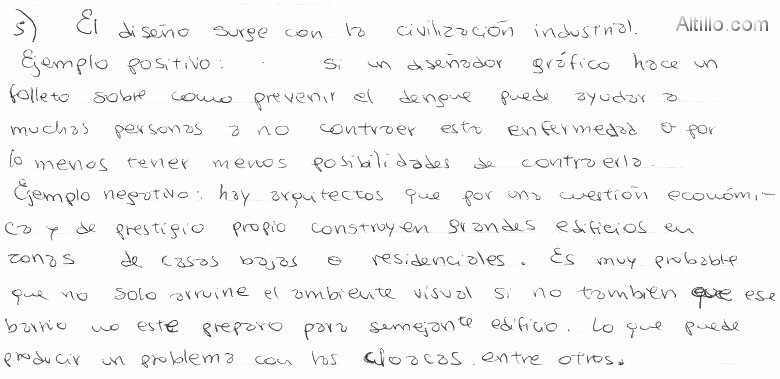 Altillo.com
5) El diseño surge con la civilización industrial.
Ejemplo positivo: si un diseñador gráfico hace un
folleto sobre como prevenir el dengue puede ayudar a
muchas personas a no contraer esta enfermedad o por
lo menos tener menos posibilidades de contraerla.
Ejemplo negativo: hay arquitectos que por una cuestión económi-
ca y de prestigio propio construyen grandes edificios en
zonas de casas bajas o residenciales. Es muy probable
que no solo arruine el ambiente visual si no también que ese
barrio no este preparo para semejante edifico. Lo que puede
producir un problema con las cloacas. entre otros.